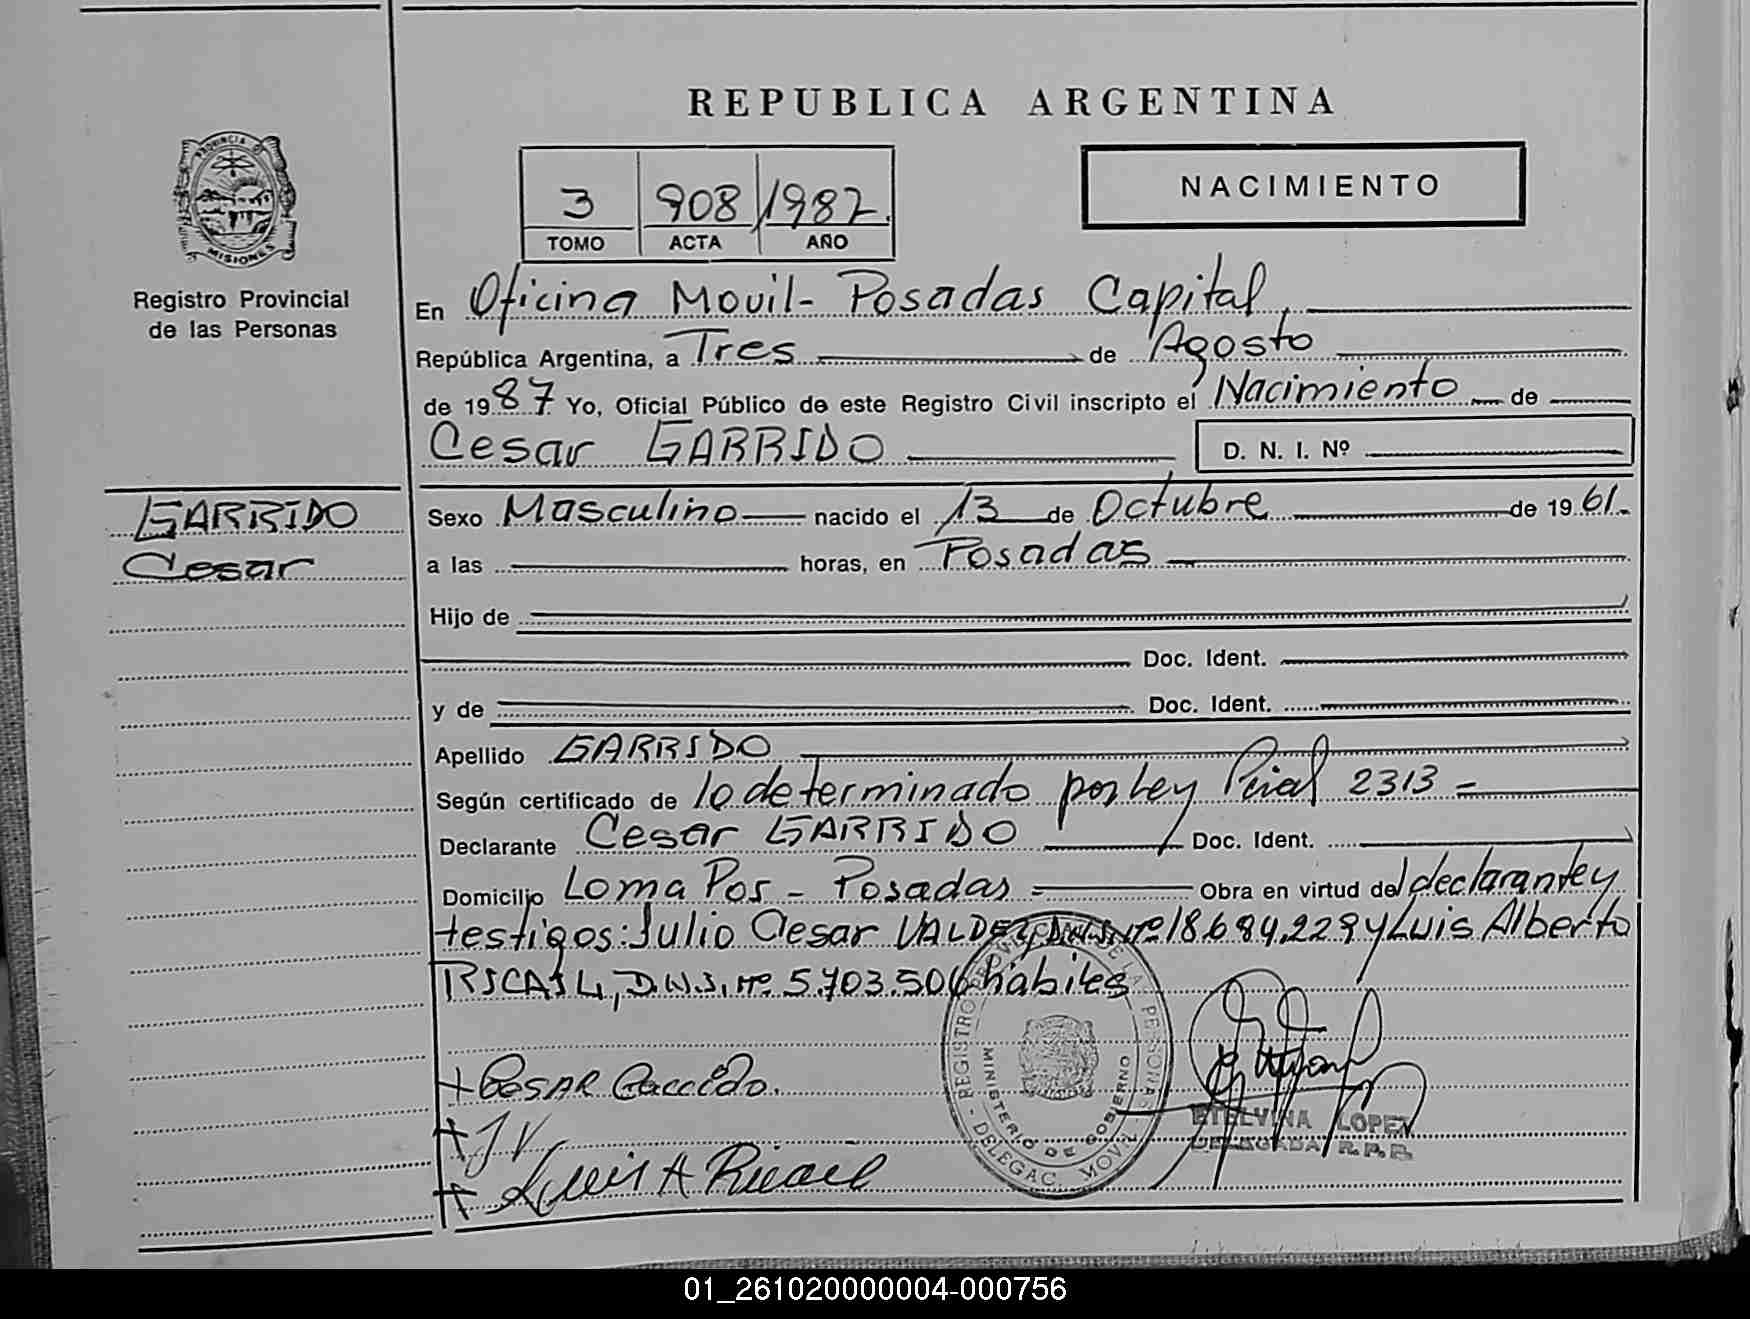 REPUBLICA ARGENTINA
PROVINCIA D
MISIONES
Registro Provincial
de las Personas
3 908 1987
TOMO ACTA AÑO
NACIMIENTO
En Oficina Movil- Posadas Capital,
República Argentina, a Tres de Agosto
de 1987 Yo, Oficial Público de este Registro Civil inscripto el Nacimiento de
Cesar GARRIDO D. N. I. Nº
GARRIDO
Cesar
Sexo Masculino nacido el 13 de Octubre de 1961.-
a las horas, en Posadas
Hijo de
Doc. Ident.
y de Doc. Ident.
Apellido GARRIDO
Según certificado de lo determinado por Ley Pcial 2313 =
Declarante Cesar GARRIDO Doc. Ident.
Domicilio Loma Pos - Posadas = Obra en virtud del declarante y
testigos: Julio Cesar VALDEZ, D.N.I. nº 18.694.229 y Luis Alberto
RICAIL, D.N.I. nº 5.703.506 hábiles
REGISTRO PROVINCIAL DE LAS PERSONAS
MINISTERIO DE GOBIERNO
- DELEGAC. MOVIL -
+ Cesar Garrido.
+ J V
+ Luis A Ricail
ETELVINA LOPEZ
DELEGADA R.P.P.
01_261020000004-000756